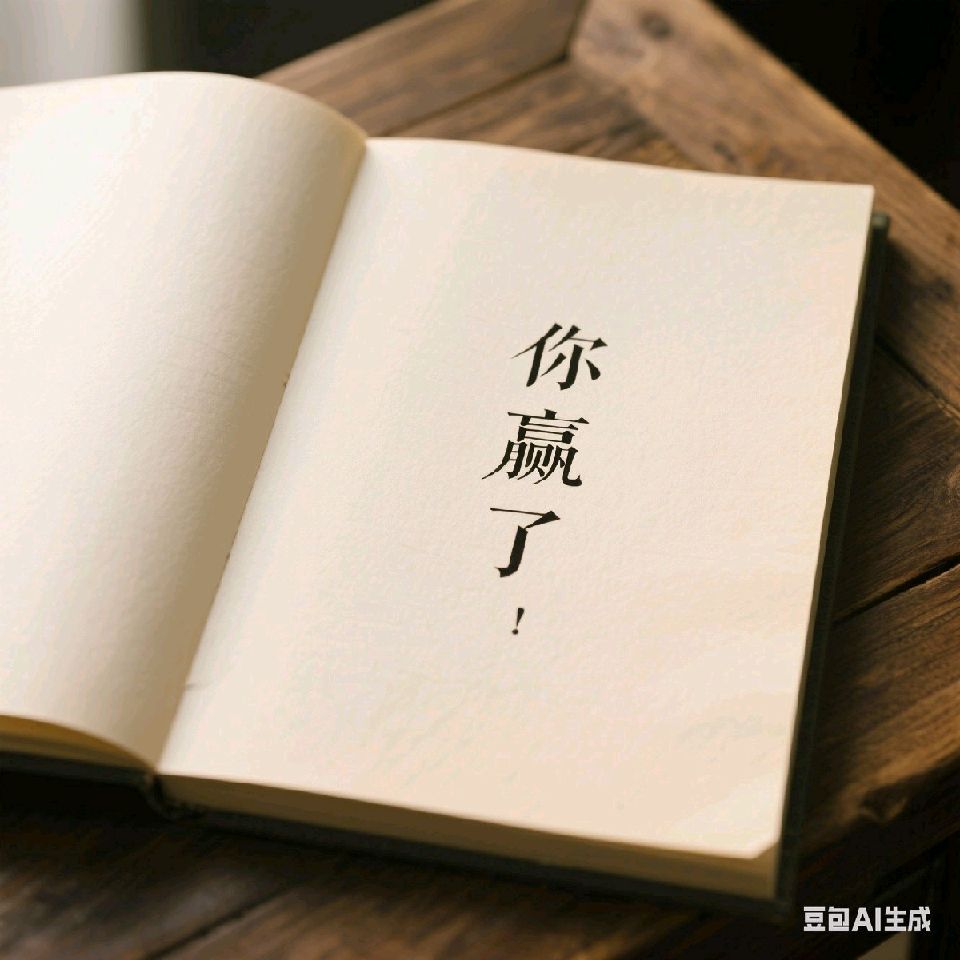 你赢了！
豆包AI生成